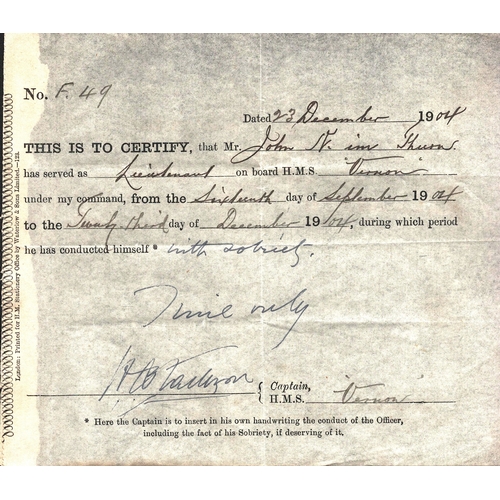 No. F. 49
Dated 23 December 1904
THIS IS TO CERTIFY, that Mr. John N. im Thurn
has served as Lieutenant on board H.M.S. "Vernon"
under my command, from the Sixteenth day of September 1904
to the Twenty third day of December 1904, during which period
he has conducted himself * with sobriety.
Time only
H B Jackson
Captain,
H.M.S. "Vernon"
* Here the Captain is to insert in his own handwriting the conduct of the Officer,
including the fact of his Sobriety, if deserving of it.
London: Printed for H.M. Stationery Office by Waterlow & Sons Limited.—123.